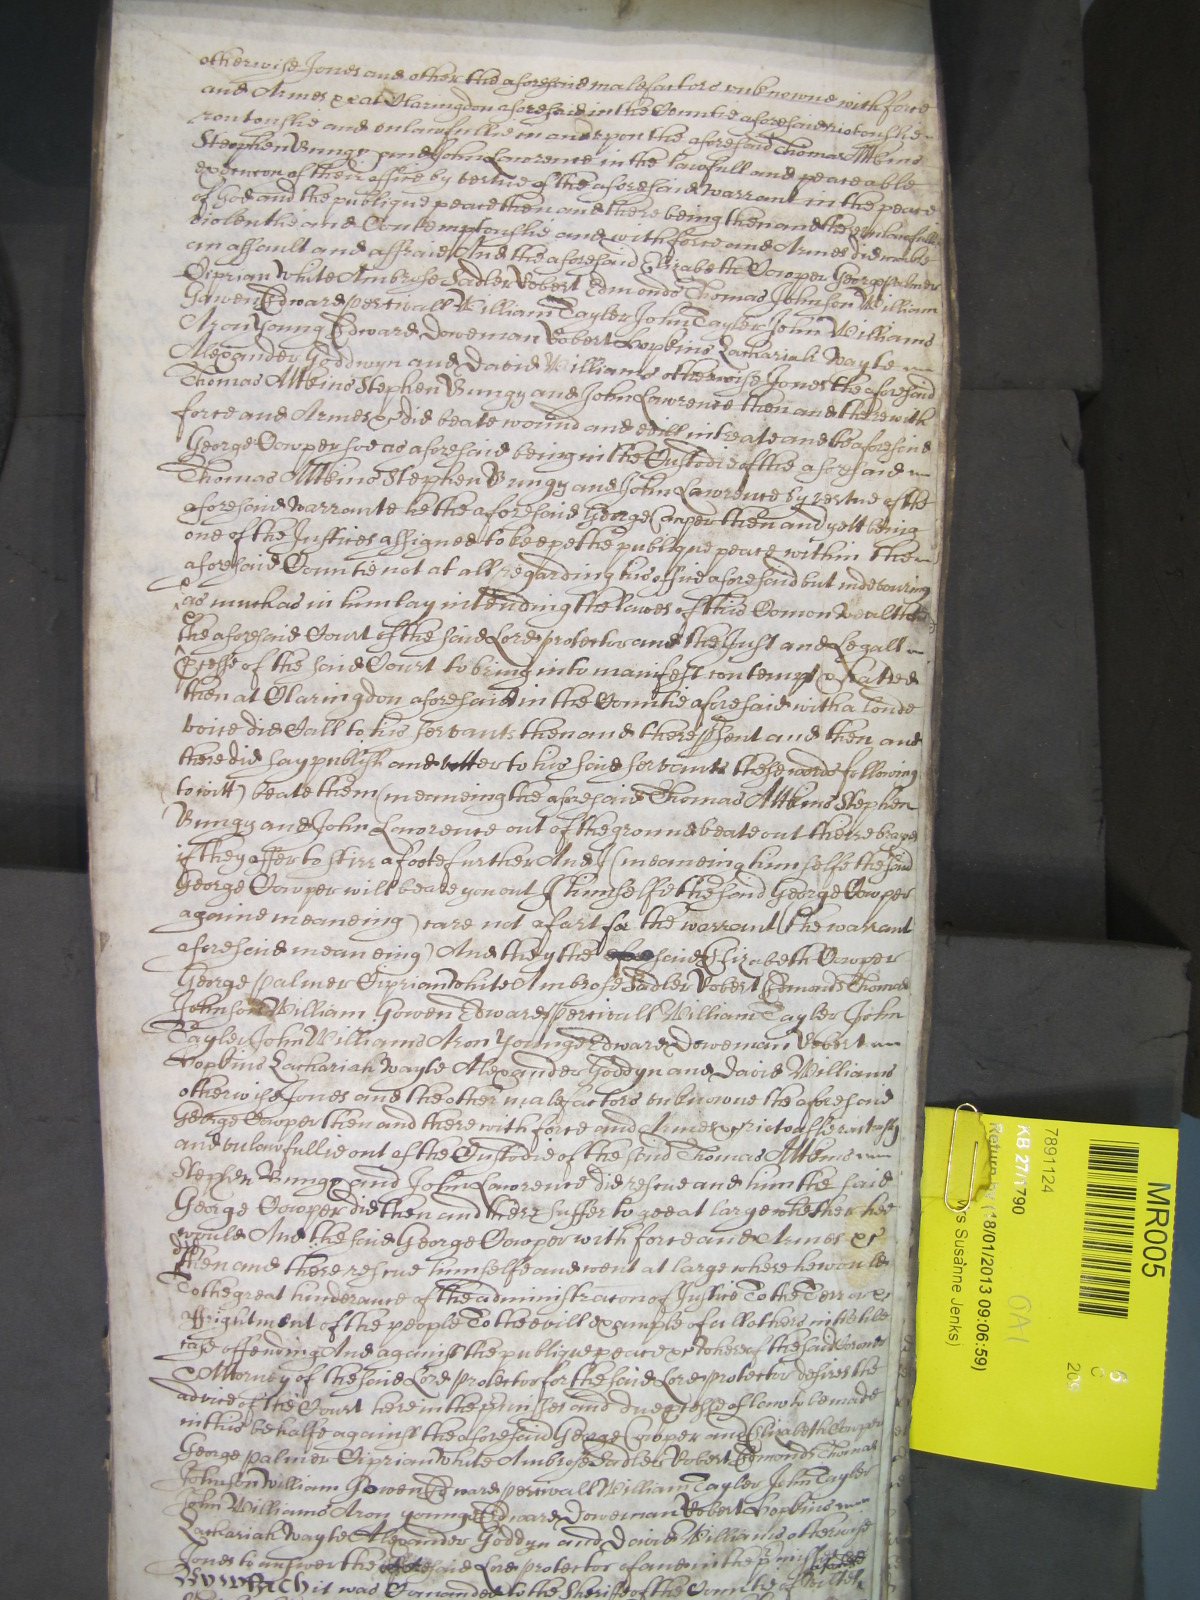 otherwise Jones and other the aforesaid malefactors unknowne with force
and Armes &c at Claringdon aforesaid in the Countie aforesaid riotouslie
routouslie and unlawfullie in and upon the aforesaid Thomas Attkins
Stephen Bungy and John Lawrence in the lawfull and peaceable
execucon of their office by vertue of the aforesaid warrant in the peace
of God and the publique peace then and there being then and there unlawfullie
violentlie and Contemptouslie and with force and Armes did make
an assault and affraie And the aforesaid Elizabeth Cowper George Palmer
Ciprian White Ambrose Sadler Robert Edmonds Thomas Johnson William
Gawen Edward percivall William Tayler John Tayler John Williams
Aron Young Edward Doweman Robert Hopkins Zachariah Wayte
Alexander Goddwyn and David Williams otherwise Jones the aforesaid
Thomas Attkins Stephen Bungy and John Lawrence then and there with
force and Armes &c did beate wound and evill intreate and the aforesaid
George Cowper soe as aforesaid being in the Custodie of the aforesaid
Thomas Attkins Stephen Bungy and John Lawrence by vertue of the
aforesaid warrant he the aforesaid George Cowper then and yett being
one of the Justices assigned to keepe the publique peace within the
aforesaid Countie not at all regarding his office aforesaid but indevouring
as much as in him lay intending the Lawes of this Comon Wealth
the aforesaid Court of the said Lord protector and the Just and Legall
pcesse of the said Court to bring into manifest contempt & hatred
then at Claringdon aforesaid in the Countie aforesaid with a loude
voice did Call to his servants then and there psent and then and
there did say publish and utter to his said servants these words following
(to witt) beate them (meaneing the aforesaid Thomas Attkins Stephen
Bungy and John Lawrence out of the ground beate out theire braynes
if they offer to stirr a foote further And I (meaneing himselfe the said
George Cowper will beare you out I himselfe the said George Cowper
againe meaneing) care not a fart for the warrant (the warrant
aforesaid meaneing) And they the said Elizabeth Cowper
George Palmer Ciprian White Ambrose Sadler Robert Edmonds Thomas
Johnson William Gowen Edward Percivall William Tayler John
Tayler John Williams Aron Younge Edward Doweman Robert
Hopkins Zachariah Wayte Alexander Goddyn and David Williams
otherwise Jones and the other malefactors unknowne the aforesaid
George Cowper then and there with force and Armes &c riotouslie routously
and unlawfullie out of the Custodie of the said Thomas Attkins
Stephen Bungy and John Lawrence did rescue and him the said
George Cowper did then and there suffer to goe at large whether hee
would And the said George Cowper with force and Armes &c
then and there rescue himselfe and went at large where he would
To the great hinderance of the administracon of Justice To the Terror &
affrightment of the people To the evill example of all others in the like
case offending And against the publique peace &c Whereof the said
Attorney of the said Lord protector for the said Lord protector desires the
advice of the Court here in the pmisses and due pcesse of law to be made
in this behalfe against the aforesaid George Cowper and Elizabeth Cowper
George palmer Ciprian White Ambrose Sadler Robert Edmonds Thomas
Johnson William Gowen Edward percivall William Tayler John Tayler
John Williams Aron younge Edward Doweman Robert Hopkins
Zachariah Wayte Alexander Goddyn and David Williams otherwise
Jones to answer the said Lord protector of and in the pmisses
By which it was Comanded to the Sheriffe of the Countie of Wiltes
MR005
6
C
209
7891124
KB 27/1790
Return by (18/01/2013 09:06:59)
Mrs Susanne Jenks)